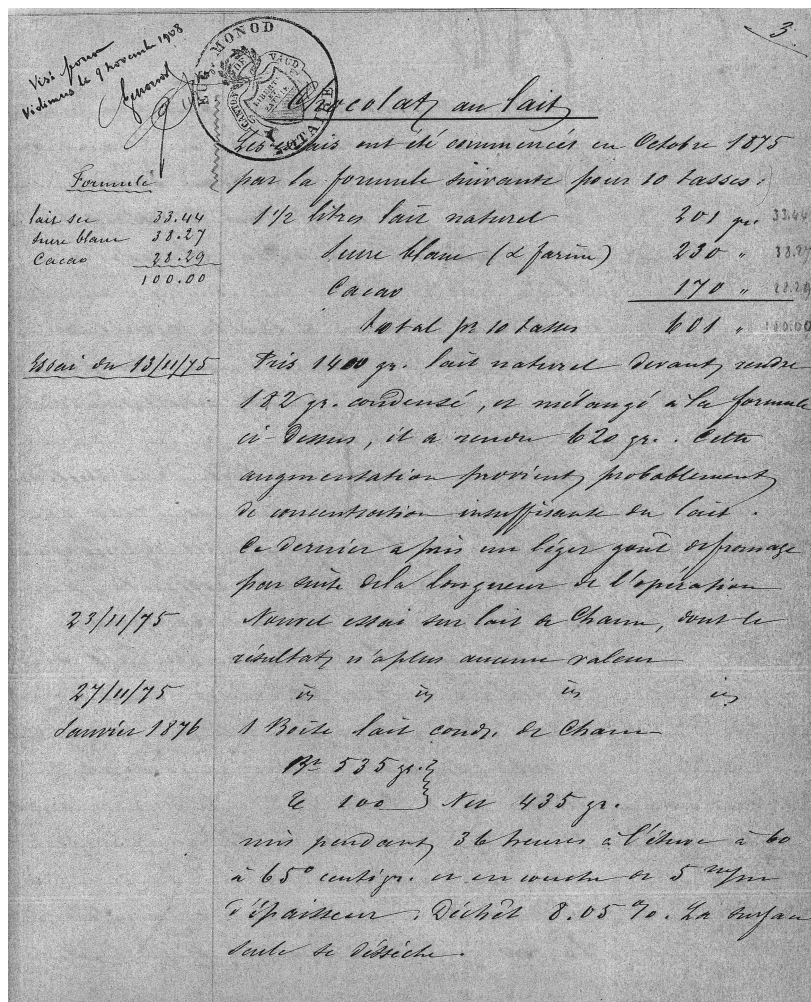 3.
Visé pour
Vidimus le 9 novembre 1908
EUG. MONOD
NOTAIRE
CANTON DE VAUD
LIBERTÉ ET PATRIE
Chocolat au lait
Les essais ont été commencés en Octobre 1875
par la formule suivante pour 10 tasses :
Formule
lait sec 33.44
sucre blanc 38.27
Cacao 28.29
100.00
1 1/2 litres lait naturel 201 gr. 33.44
Sucre blanc (& farine) 230 " 38.27
Cacao 170 " 28.29
total pr 10 tasses 601 " 100.00
Essai du 13/11/75 Pris 1400 gr. lait naturel devant rendre
182 gr. condensé, et mélangé à la formule
ci-dessus, il a rendu 620 gr. . Cette
augmentation provient probablement
de concentration insuffisante du lait .
Ce dernier a pris un léger goût de fromage
par suite de la longueur de l'opération
23/11/75 Nouvel essai sur lait de Cham, dont le
résultat n'a plus aucune valeur
27/11/75 " " " "
Janvier 1876 1 Boîte lait cond. de Cham
Bt 535 gr.
Te 100 } Net 435 gr.
mis pendant 36 heures à l'étuve à 60
à 65° centigr. et en couche de 5 m/m
d'épaisseur . Déchêt 8.05 %. La surface
seule se déssèche .